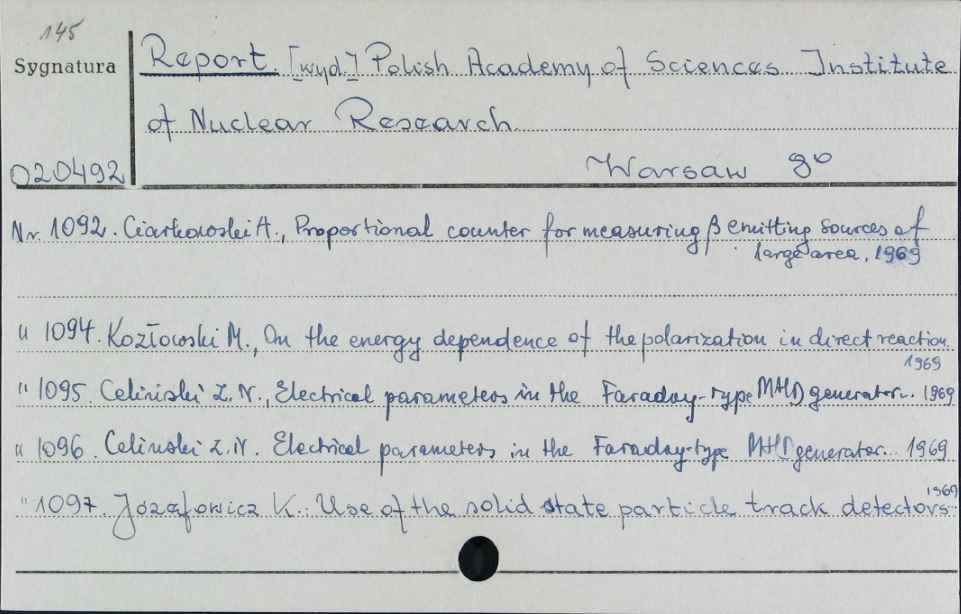 145
Sygnatura
020492
Report. [wyd.] Polish Academy of Sciences Institute
of Nuclear Research
Warsaw 8°
Nr. 1092. Ciarkowski A., Proportional counter for measuring β emitting sources of
large area, 1969
" 1094. Kozłowski M., On the energy dependence of the polarization in direct reaction.
1969
" 1095. Celiński Z. N., Electrical parameters in the Faraday-type MHD generator. 1969
" 1096. Celiński Z. N. Electrical parameters in the Faraday-type MHD generator. 1969
" 1097. Józefowicz K.: Use of the solid state particle track detectors
1969